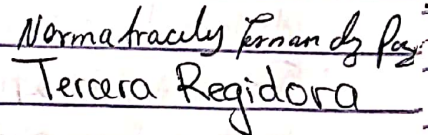 Norma Aracely Fernandz Paz
Tercera Regidora